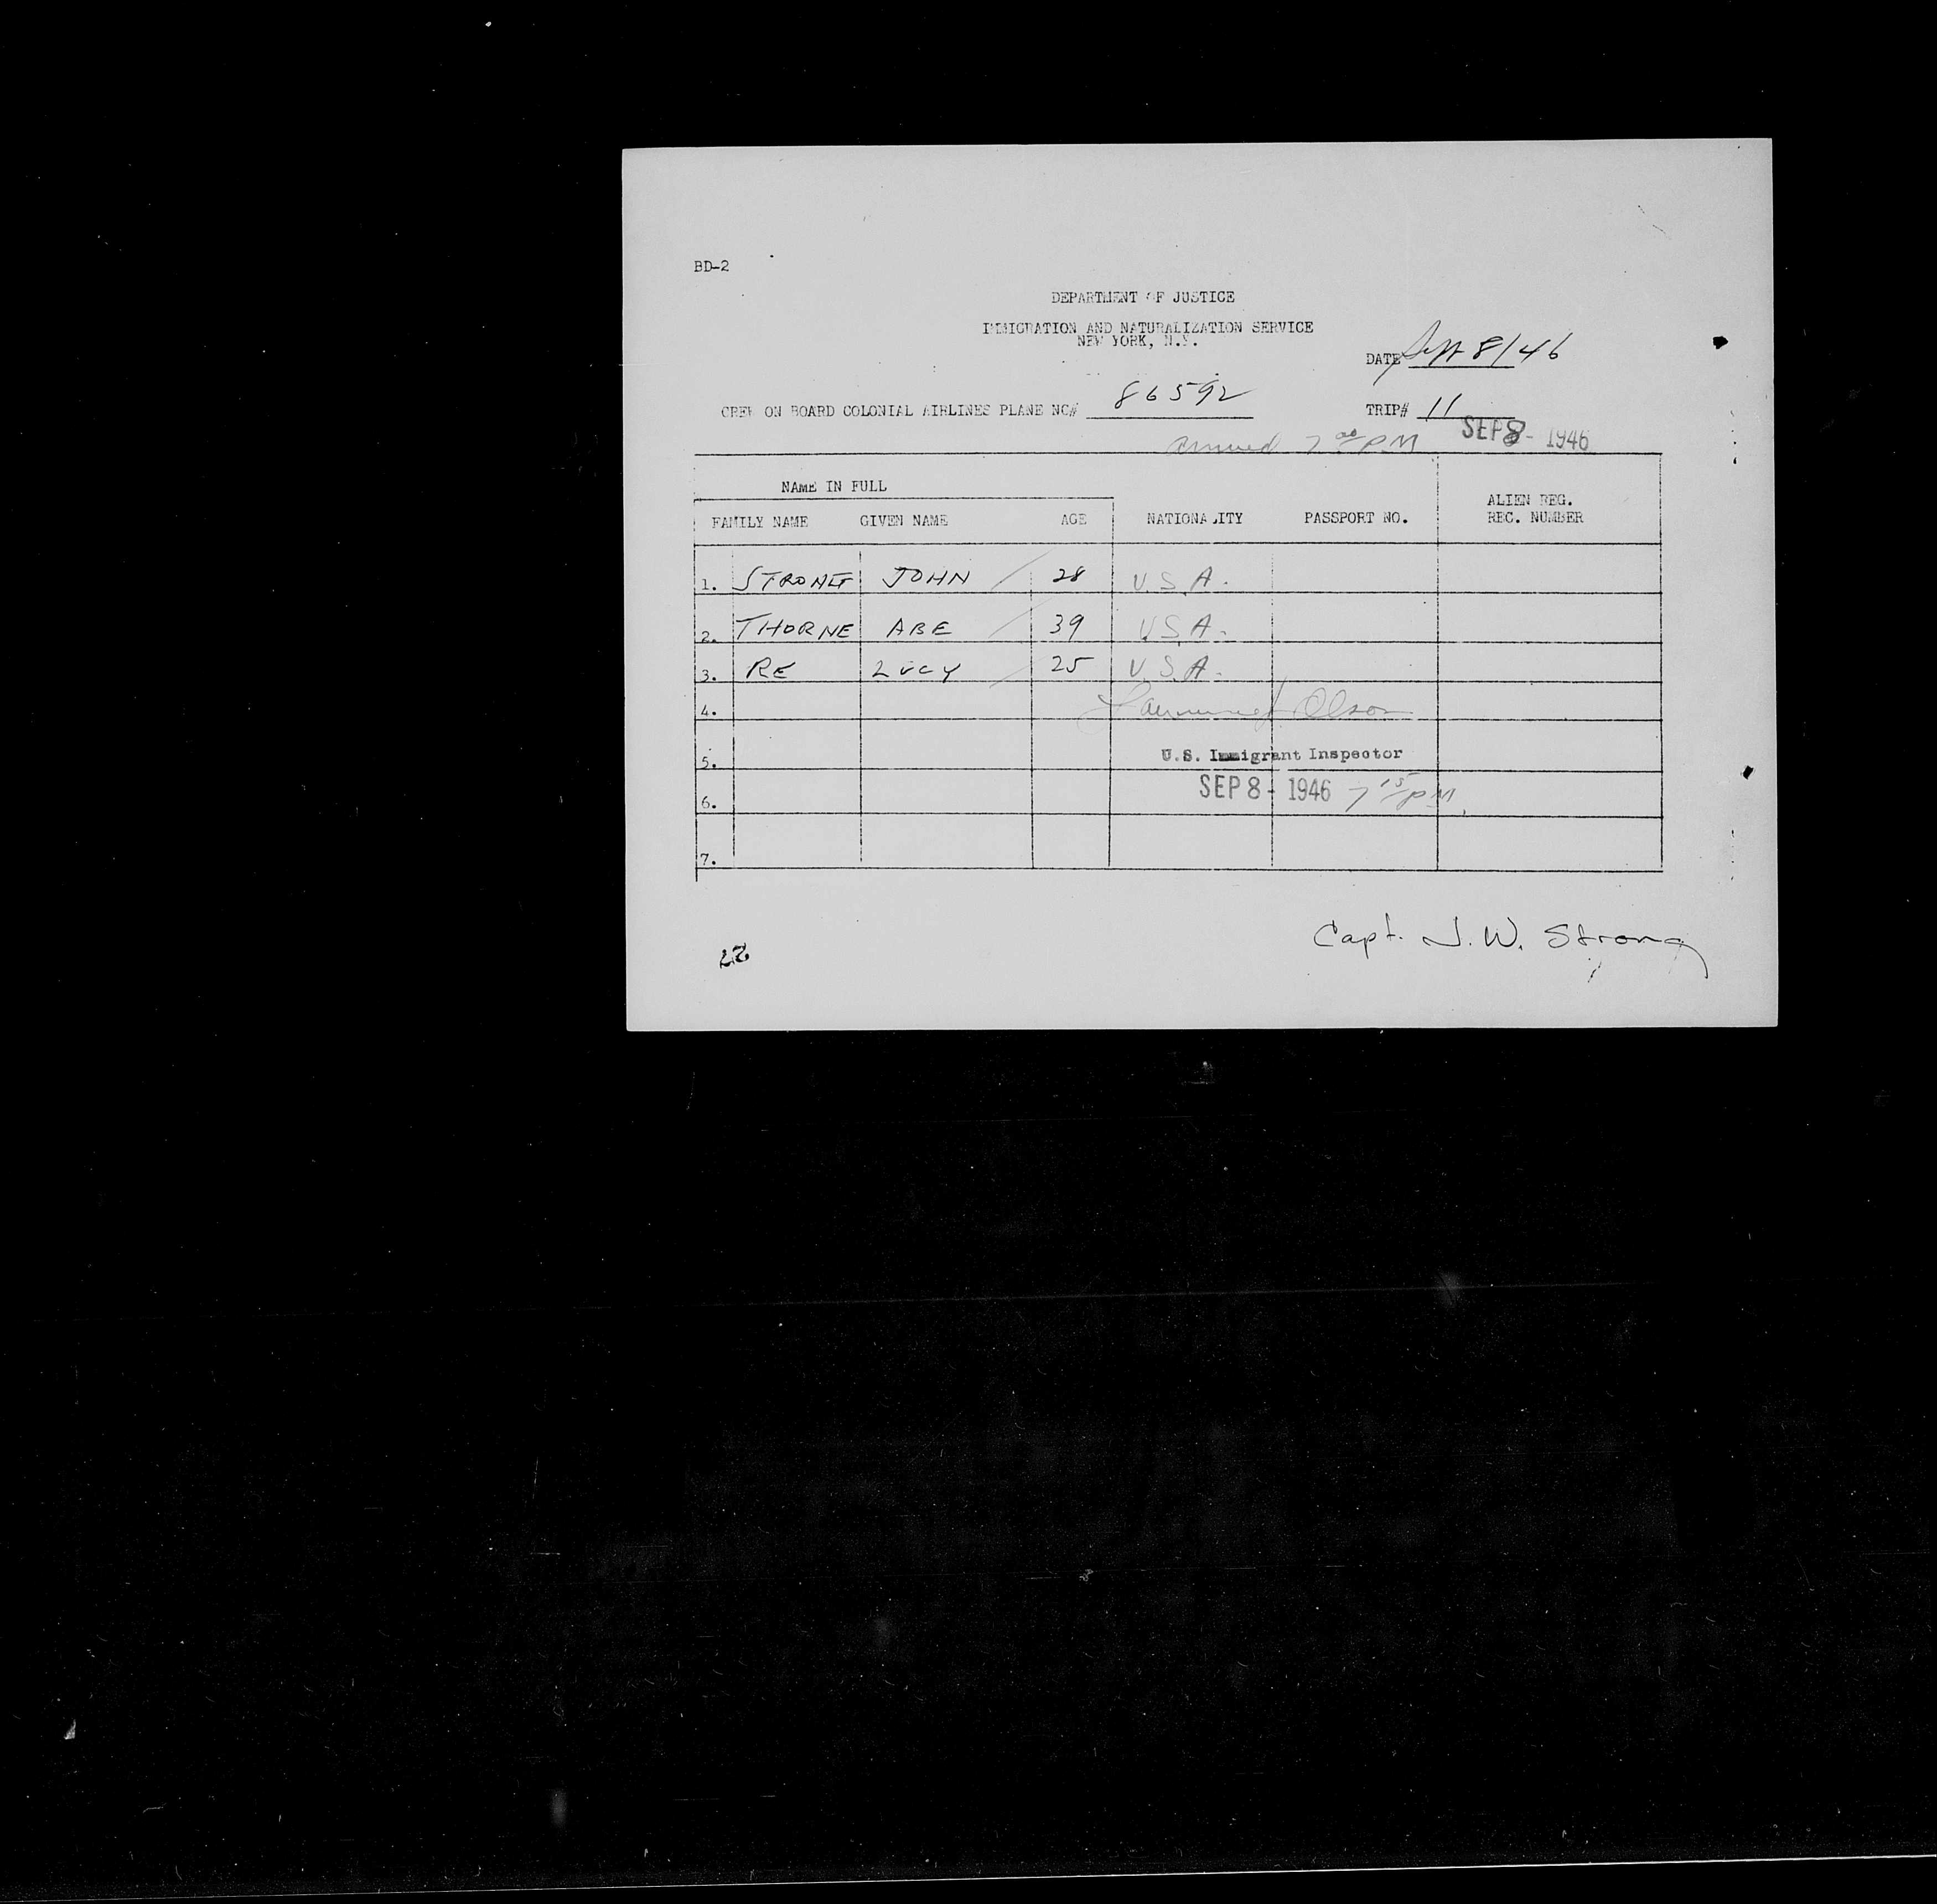 BD-2
DEPARTMENT OF JUSTICE
IMMIGRATION AND NATURALIZATION SERVICE
NEW YORK, N.Y.
DATE Sept 8/46
CREW ON BOARD COLONIAL AIRLINES PLANE NC# 86592 TRIP# 11
arrived 7 00 PM SEP 8 - 1946
NAME IN FULL
FAMILY NAME GIVEN NAME AGE NATIONALITY PASSPORT NO. ALIEN REG. REC. NUMBER
1. STRONG JOHN 28 U.S.A.
2. THORNE ABE 39 U.S.A.
3. RE LUCY 25 U.S.A.
4. Olson
5. U.S. Immigrant Inspector
6. SEP 8 - 1946 7 15 PM
7.
Capt. J. W. Strong
22